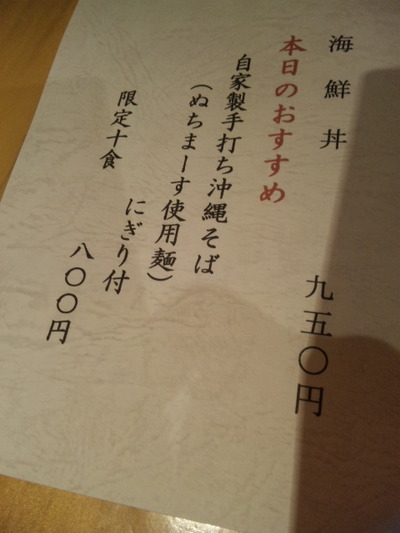 海鮮丼 九五〇円
本日のおすすめ
自家製手打ち沖縄そば
(ぬちまーす使用麺)
にぎり付
限定十食 八〇〇円